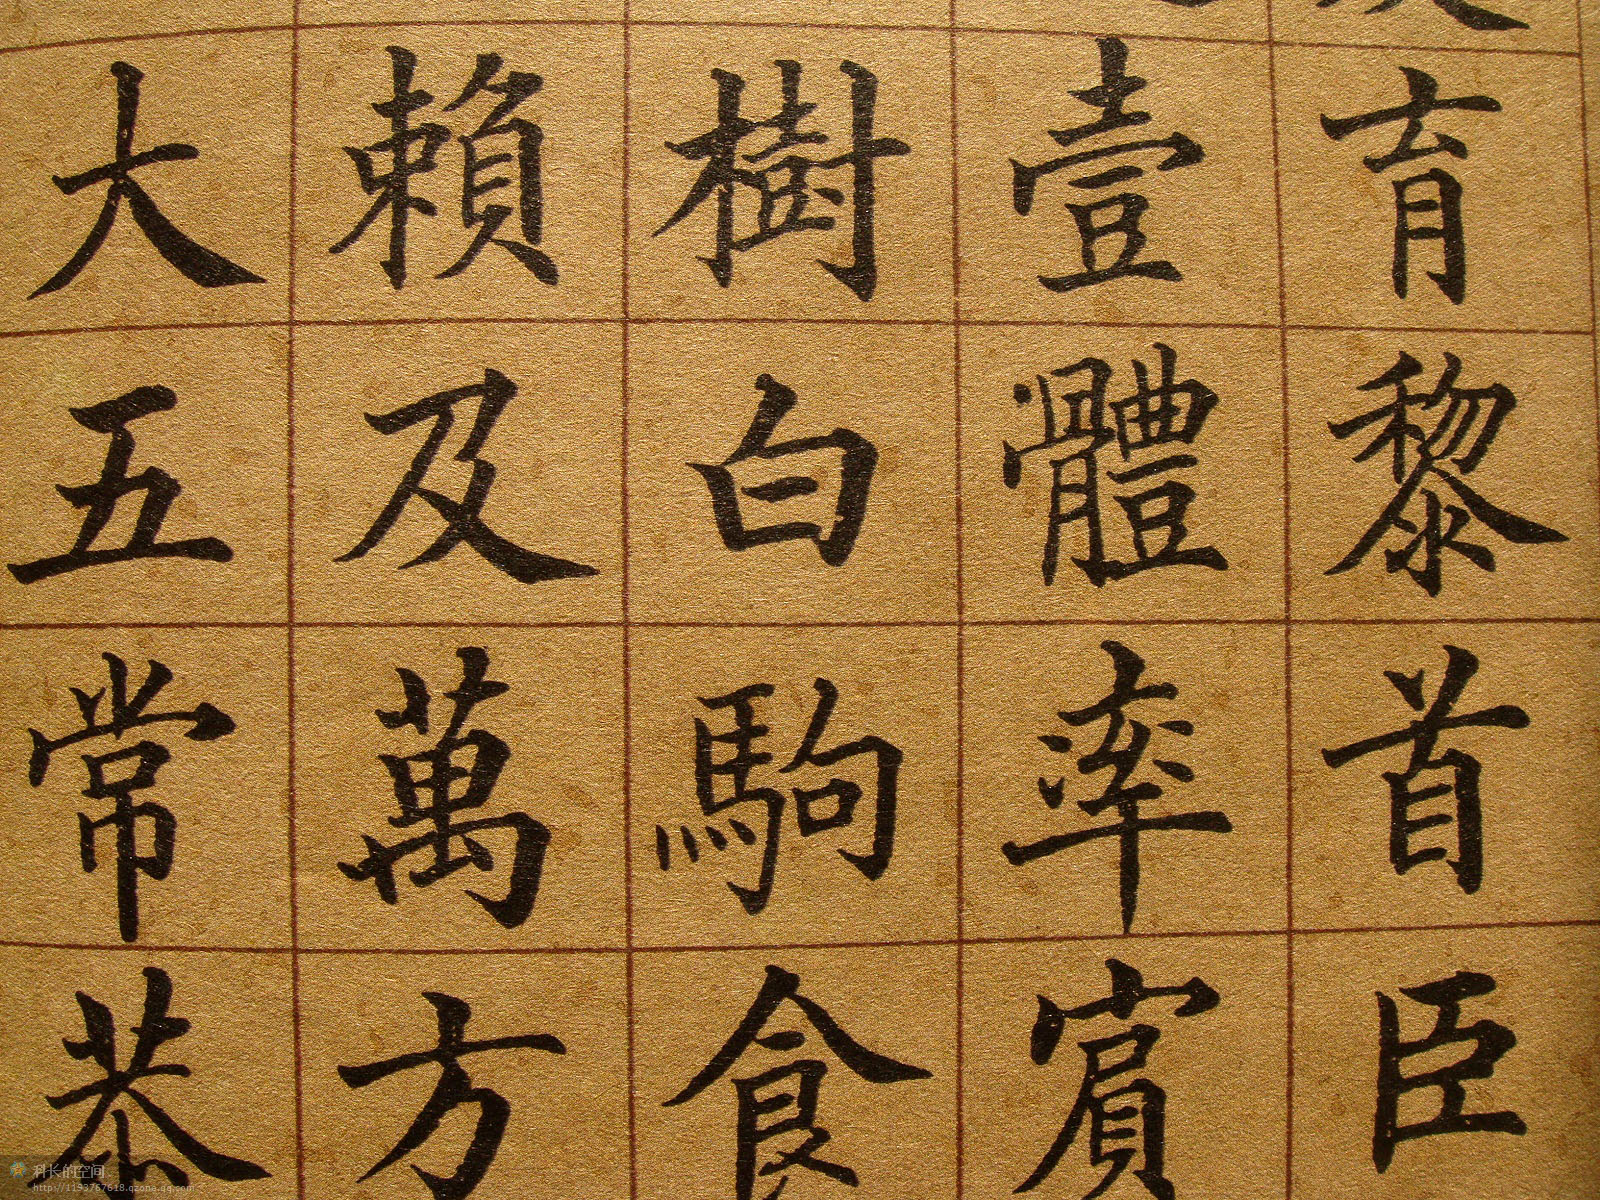 育黎首臣
壹體率賓
樹白駒食
賴及萬方
大五常恭
科长的空间
http://1193767618.qzone.qq.com